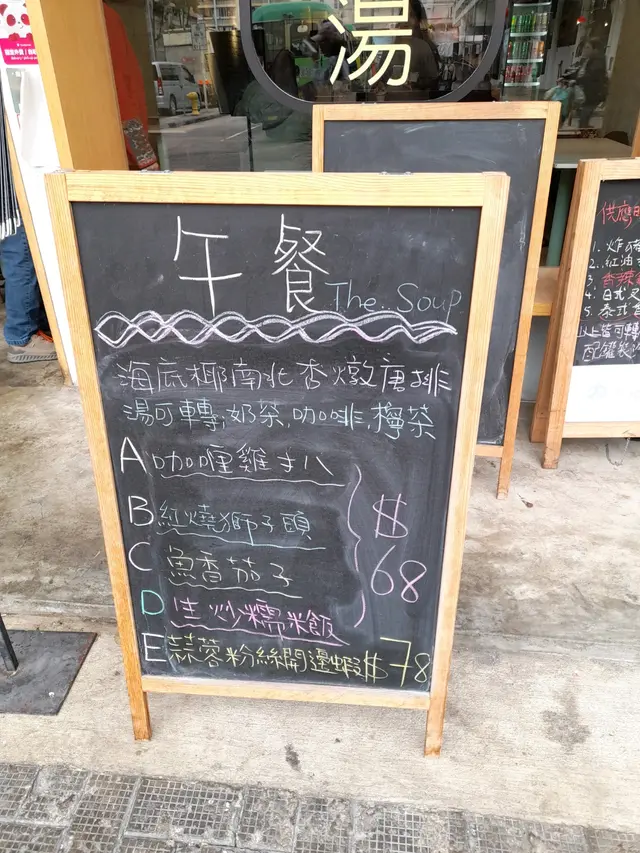 湯
午餐 The Soup
海底椰南北杏燉唐排
湯可轉:奶茶,咖啡,檸茶
A 咖喱雞扒
B 紅燒獅子頭
C 魚香茄子
D 生炒糯米飯
$68
E 蒜蓉粉絲開邊蝦 $78
供應
1. 炸
2. 紅油
3. 香辣
4. 日式
5. 泰式
以上皆可轉
配罐裝